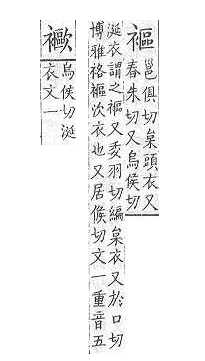 䙔
邕俱切枲頭衣又
春朱切又烏侯切
涎衣謂之䙔又委羽切編枲衣又於口切
博雅袼䙔次衣也又居候切文一重音五
烏侯切涎
衣文一